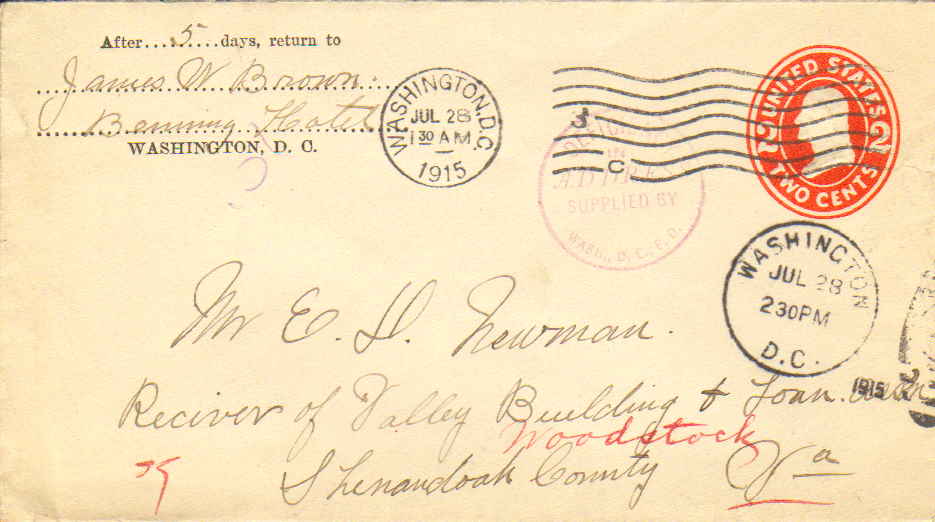 After....5....days, return to
James W Brown.
Benning Hotel
WASHINGTON, D. C.
WASHINGTON, D.C.
JUL 28
1 30 AM
1915
3
C
IN
ADDRESS
SUPPLIED BY
WASH., D. C., P. O.
UNITED STATES
2 2
TWO CENTS
WASHINGTON
JUL 28
2 30 PM
D.C.
1915
Mr E. D. Newman.
Reciver of Valley Building & Loan
Woodstock
Shenandoah County Va